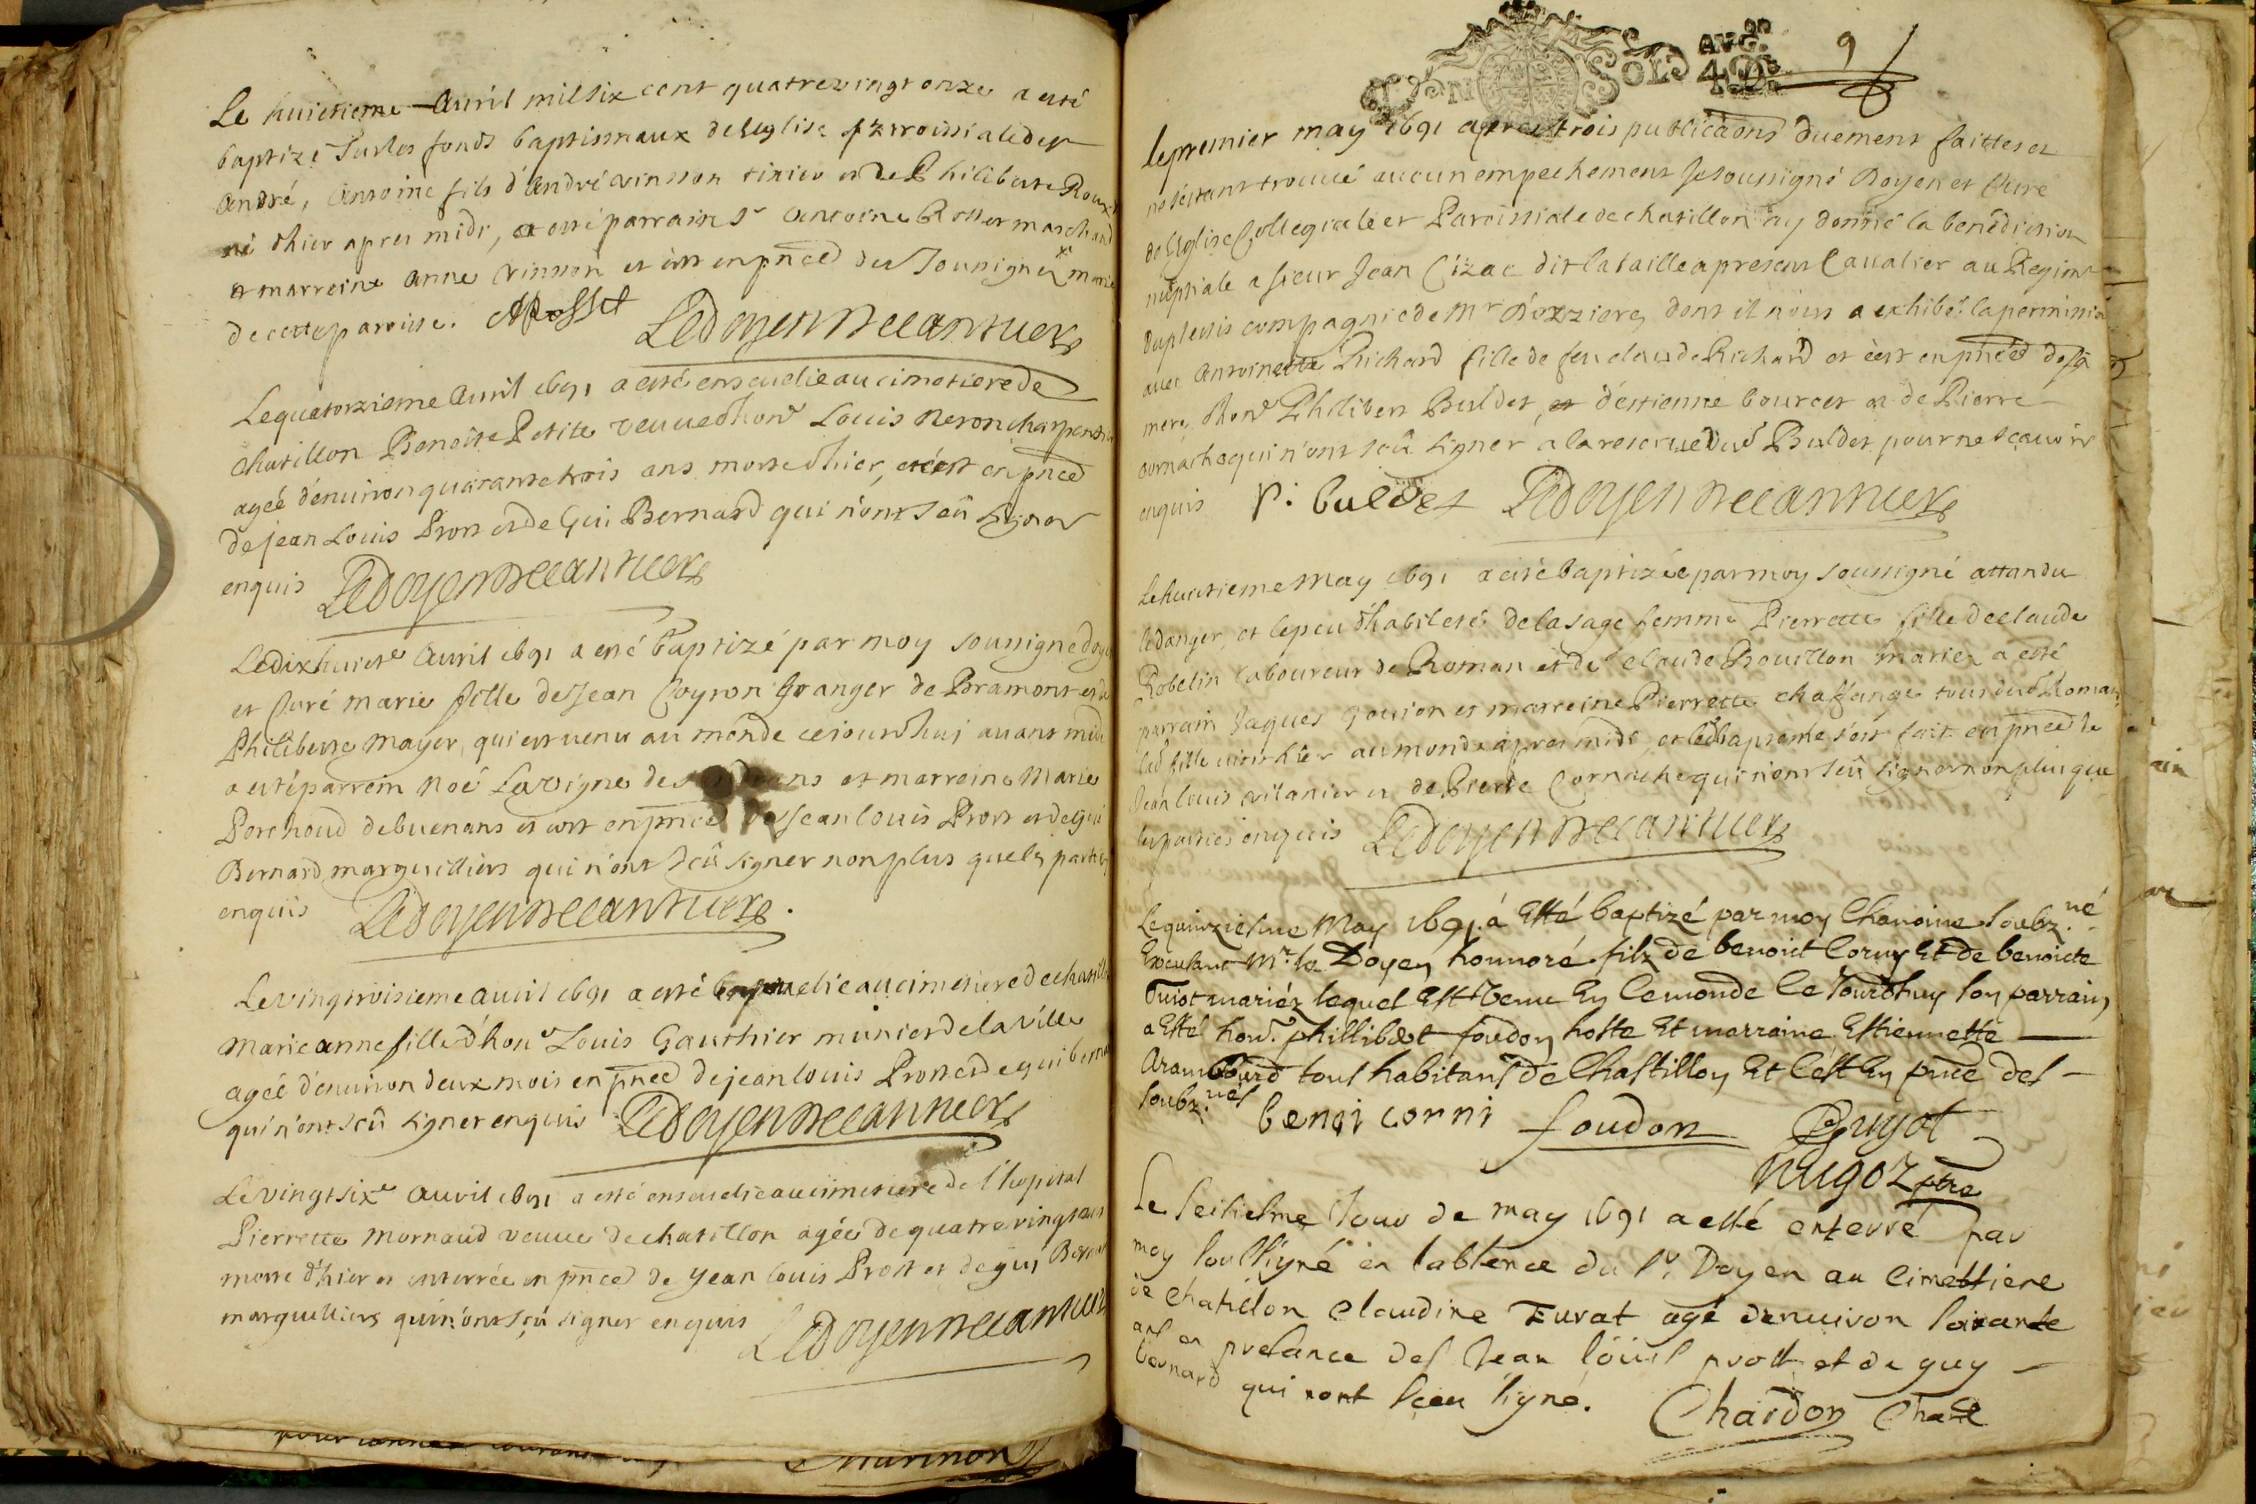 Le huictieme Avril mil six cent quatrevingt onze a esté
baptizé sur les fonds baptismaux de leglise parroissiale de st
André, Antoine fils d'André vinsson tixier et de Philiberte Roux
né d'hier apres midi, et a esté parrain Sr Antoine Rosset marchand
et marreine Anne vinsson et c'est en pñce des Soussignez
de cette paroisse. ARosset Ledoyen
Le quatorzieme Avril 1691 a esté ensevelie au cimetiere de
chatillon Benoite Petite veuve d'hone Louis Neron charpentier
agée d'environ quarante trois ans morte d'hier, et c'est en pñce
de jean Louis Prost et de Gui Bernard qui n'ont sçû signer
enquis Ledoyen
Le dix huicte Avril 1691 a esté baptizé par moy soussigné doyen
et Curé marie fille de Jean Coyron Granger de Bramont et de
Philiberte Mayer, qui est venu au monde ce jourd'huj avant midi
a esté parrein Noé Lavigne de et marreine Marie
Perchoud de buenans et c'est en pñce de Jean Louis Prost et de gui
Bernard marguilliers qui n'ont sçû signer non plus que les parties
enquis Ledoyen
Le vingt troisieme avril 1691 a esté ensevelie au cimetiere de chatillon
Marie anne fille d'hone Louis Gauthier munier de la ville
agée d'environ deux mois en pñce de jean louis Prost et de gui bernard
qui n'ont sçû signer enquis Ledoyen
Le vingt sixe avril 1691 a esté ensevelie au cimetiere de l'hopital
Pierrette Mornaud veuve de chatillon agée de quatrevingt ans
morte d'hier et enterrée en pñce de Jean louis Prost et de gui Bernard
marguilliers qui n'ont sçu signer enquis Ledoyen
GEN SOLS AVG. 4D. 9
le premier may 1691 apres trois publicãons duement faittes et
ne s'étant trouvé aucun empechement Je soussigné Doyen et Curé
de l'Eglise Collegiale et Paroissiale de chatillon ay donné la benediction
nuptiale a sieur Jean Cizac dit la taille a present Cavalier au Regimt
duplessis compagnie de Mr dont il nous a exhibé la permission
avec Antoinette Richard fille de feu claude Richard et c'est en pñce de sa
mere, d'hone Philibert Buldet, d'estienne bourcet et de Pierre
cornache qui n'ont sçû signer a la reserve dud Buldet pour ne sçavoir
enquis P. buldet Ledoyen
Le huictieme May 1691 a esté baptizée par moy soussigné attandu
le danger et le peu d'habileté de la sage femme Pierrette fille de claude
Robelin laboureur de Roman et de claude Bouillon mariez a esté
parrain Jaques goujon et marreine Pierrette chaffange tous dud Roman
lad fille vint hier au monde apres midi et led bapteme s'est fait en pñce de
Jean louis et de Pierre Cornache qui n'ont sçû signer non plus que
les parties enquis Ledoyen
Le quinziesme May 1691 á Esté baptizé par moy Chanoine soubz.né
Excusant Mr. le Doyen honnoré filz de benoict Corny Et de benoicte
Guiot mariéz lequel Est Venu En le monde Ce Jourdhuy son parrain
a Esté hone. phillibert foudon hoste Et marraine Estiennette
Arambourd tous habitans de Chastillon Et C'est En pñce des
soubz.nés benoi corni foudon Guyot
nugoz ptre
Le seiziesme Jour de may 1691 a esté enterré par
moy soussigné en labsence du sr. Doyen au Cimettiere
de Chatillon Claudine Furat agé denviron soixante
ans en presance des Jean louis prost et de guy
bernard qui nont sçeu signé. Chardon Chane